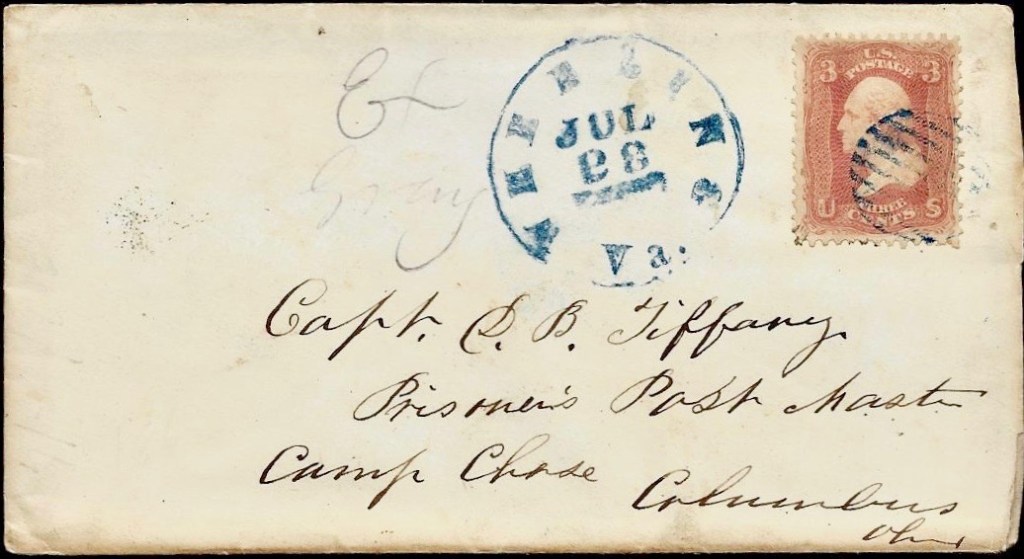 Ex
Gray
WHEELING
JUL
28
Va.
U.S.
POSTAGE
3 3
U THREE S
CENTS
Capt. S. B. Tiffany
Prisoner's Post Master
Camp Chase
Columbus
Ohio